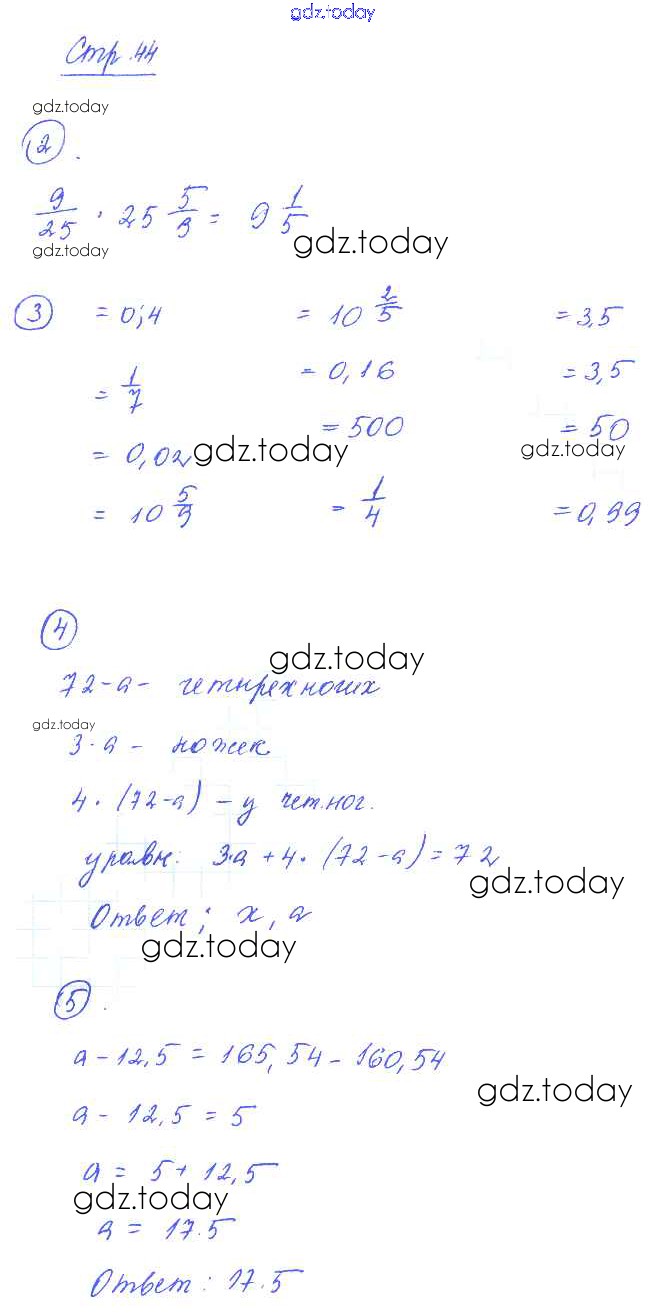 gdz.today
Стр. 44
gdz.today
2.
9/25 · 25 5/9 = 9 1/5
gdz.today
gdz.today
3 = 0,4 = 10 2/5 = 3,5
= 1/7 = 0,16 = 3,5
= 0,02 = 500 = 50
gdz.today gdz.today
= 10 5/9 = 1/4 = 0,99
4
gdz.today
72-а- четырехногих
gdz.today
3·а - ножек
4·(72-а) - у чет.ног.
уравн: 3·а + 4·(72-а) = 72
gdz.today
Ответ; х, а
gdz.today
5.
а - 12,5 = 165,54 - 160,54
gdz.today
а - 12,5 = 5
а = 5 + 12,5
gdz.today
а = 17.5
Ответ: 17.5